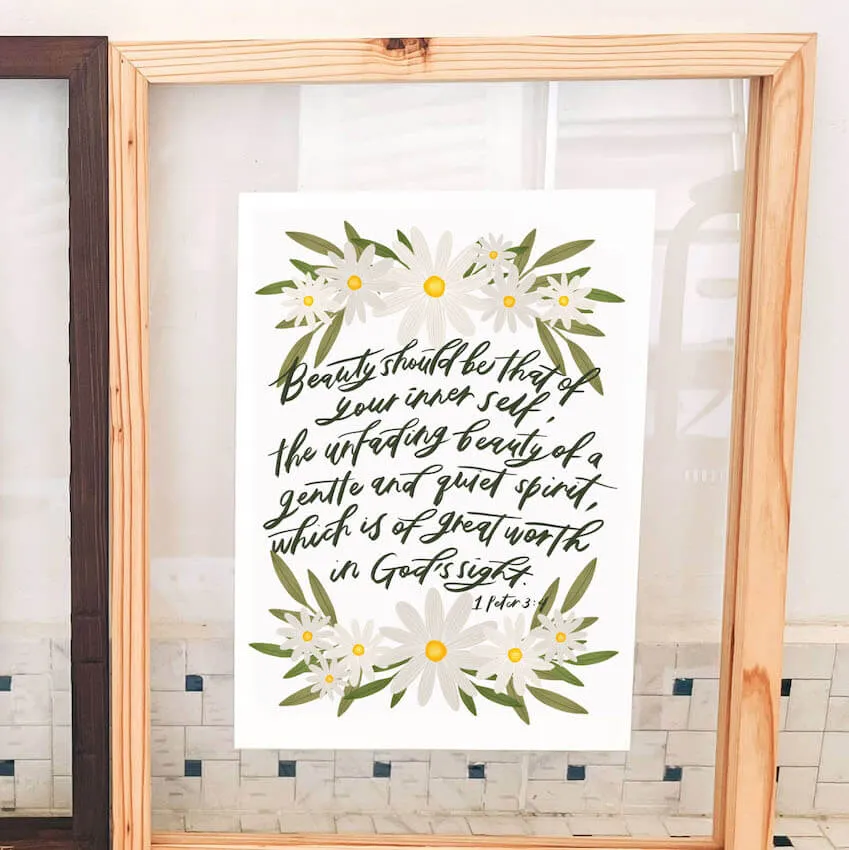 Beauty should be that of
your inner self,
the unfading beauty of a
gentle and quiet spirit,
which is of great worth
in God's sight.
1 Peter 3:4